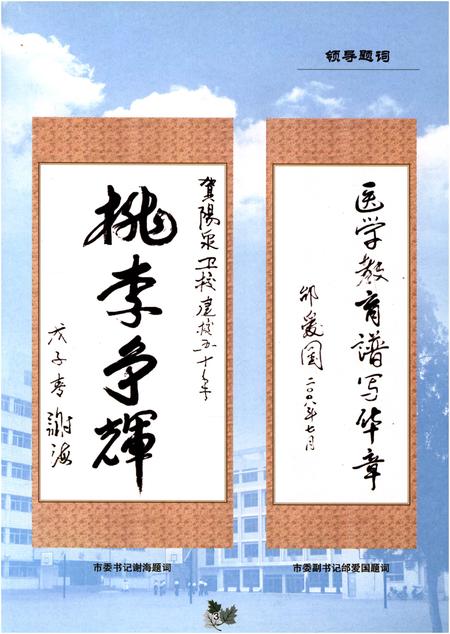 领导题词
医学教育谱写华章
邰爱国 二〇〇八年七月
市委副书记邰爱国题词
贺陽泉卫校建校五十年
桃李争輝
戊子春 謝海
市委书记谢海题词
3